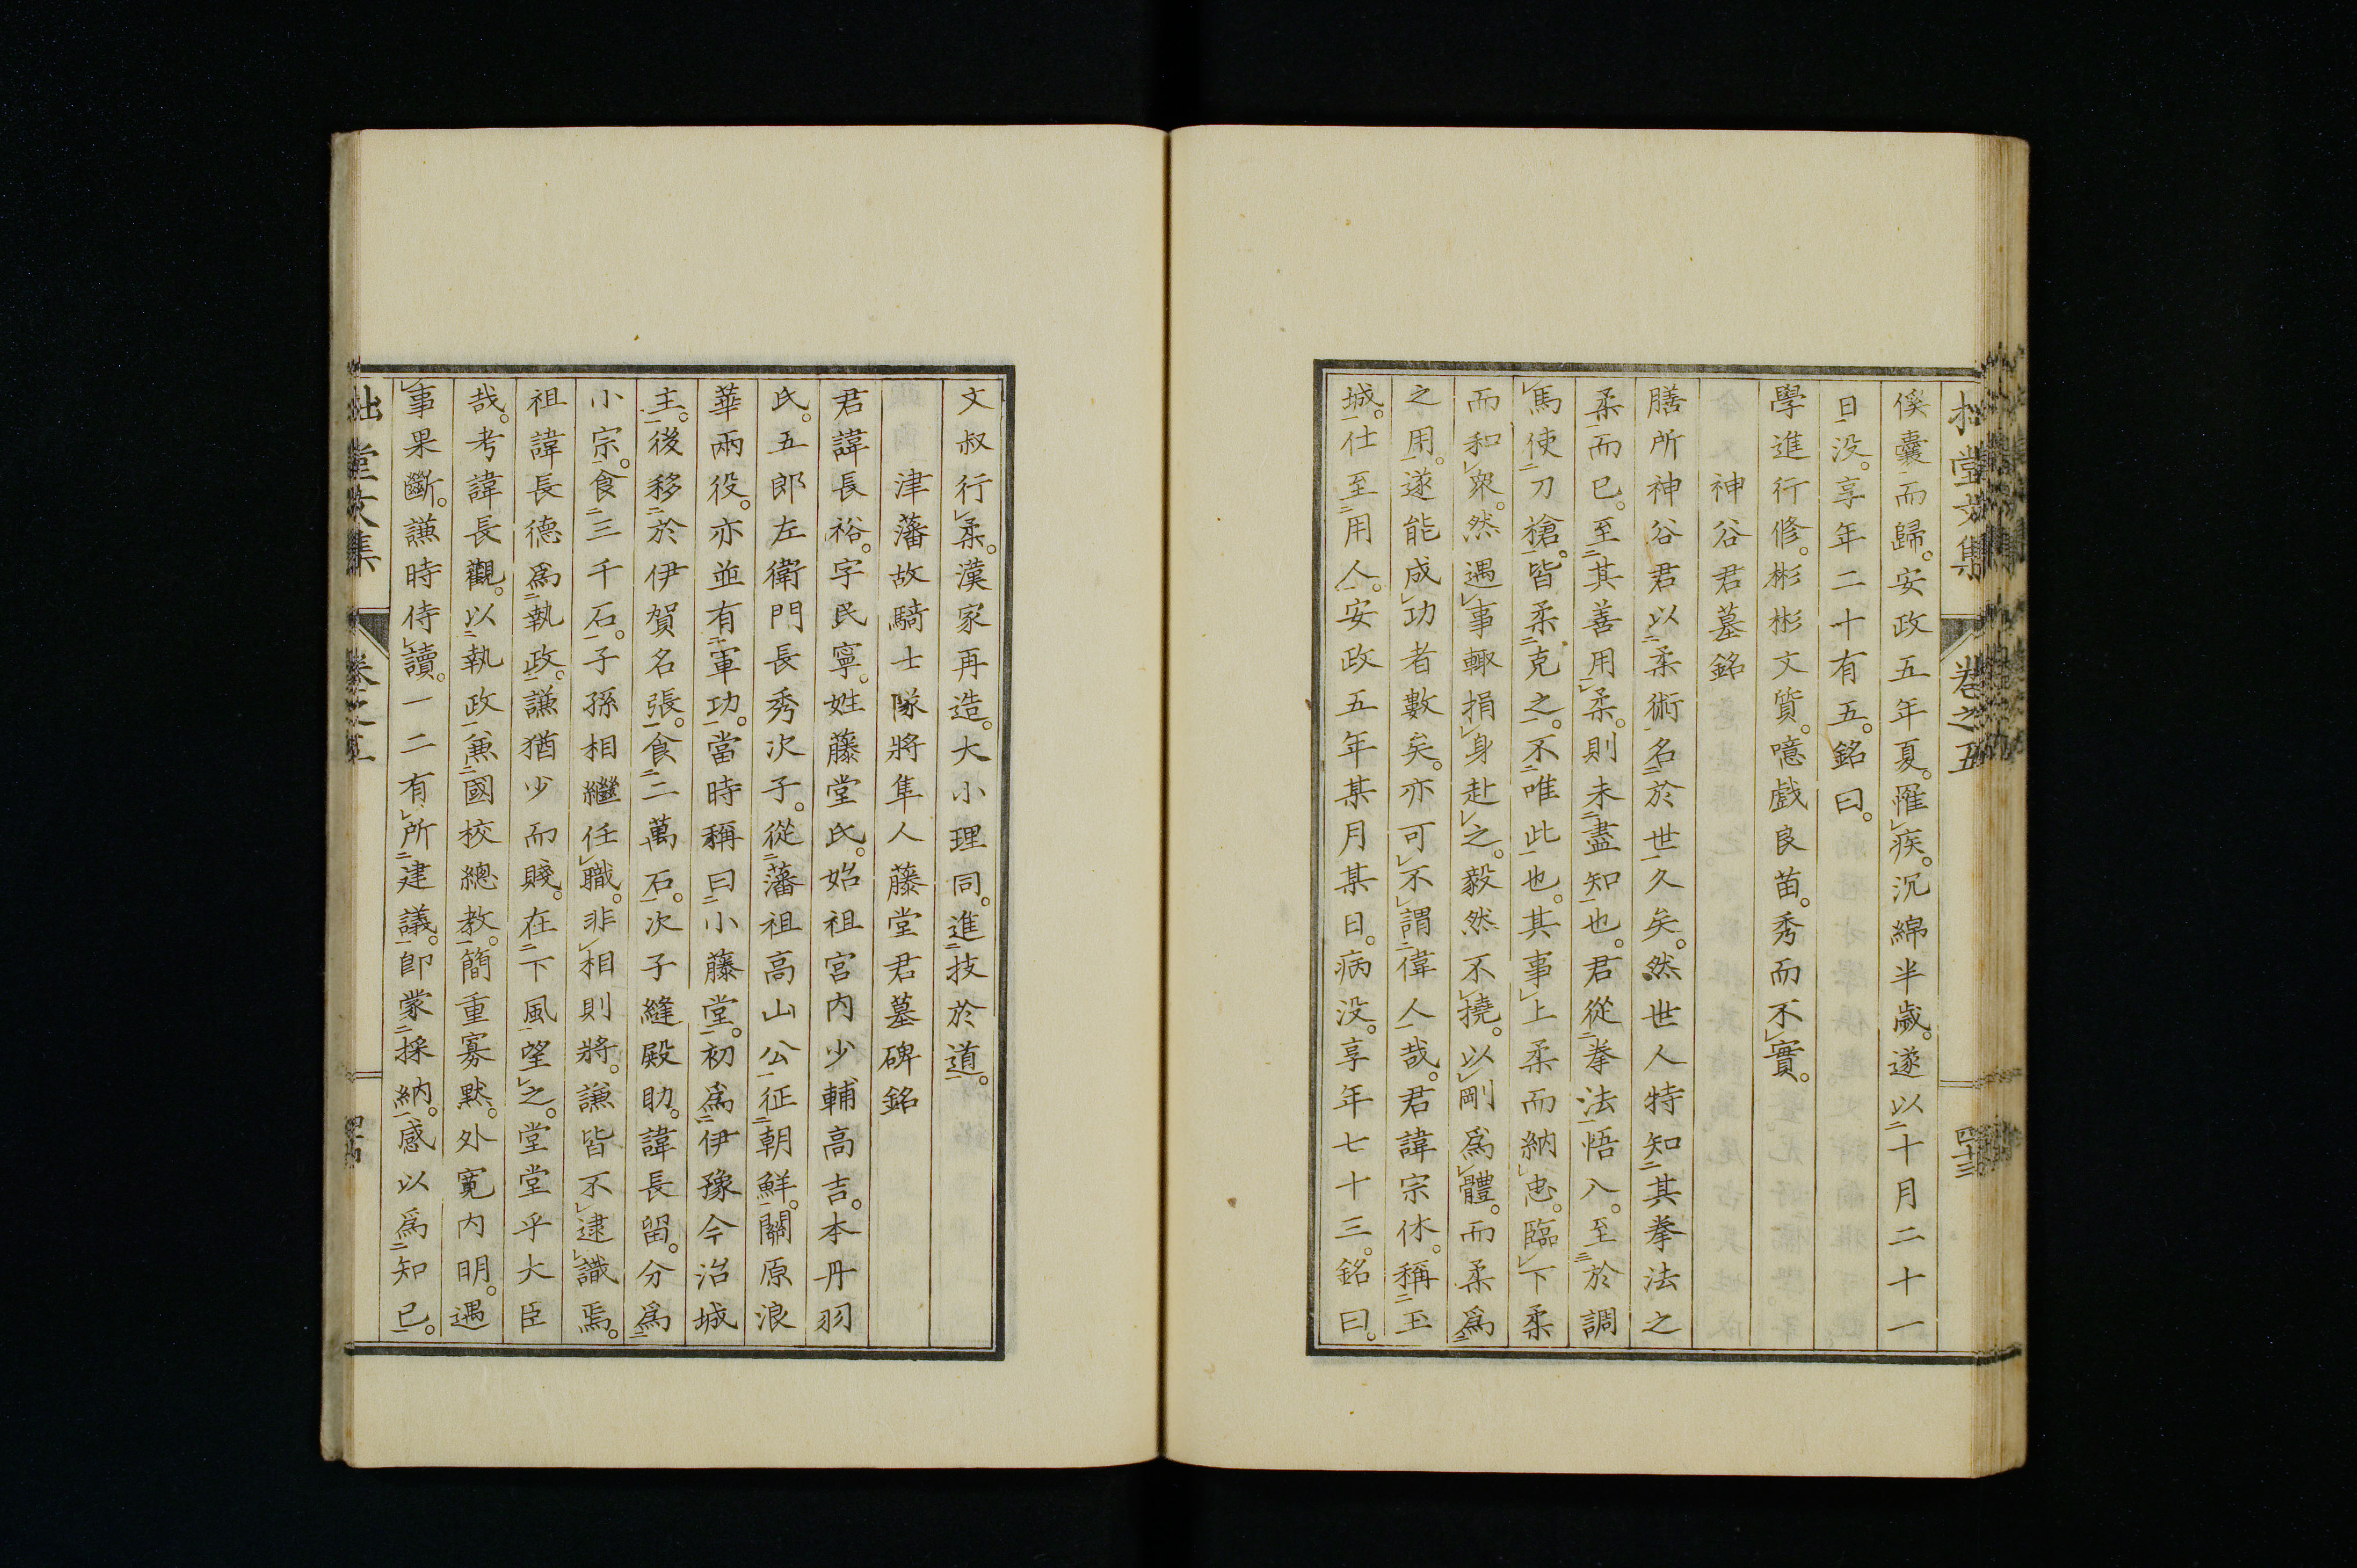 拙堂文集 卷之五 四十三
傒囊而歸。安政五年夏。罹疾。沉綿半歲。遂以十月二十一
日没。享年二十有五。銘曰。
學進行修。彬彬文質。噫戲良苗。秀而不實。
神谷君墓銘
膳所神谷君以柔術名於世久矣。然世人特知其拳法之
柔而已。至其善用柔。則未盡知也。君從拳法悟入。至於調
馬使刀槍。皆柔克之。不唯此也。其事上柔而納忠。臨下柔
而和衆。然遇事輙捐身赴之。毅然不撓。以剛爲體。而柔爲
之用。遂能成功者數矣。亦可不謂偉人哉。君諱宗休。稱玉
城。仕至用人。安政五年某月某日。病没。享年七十三。銘曰。
文叔行柔。漢家再造。大小理同。進技於道。
津藩故騎士隊將隼人藤堂君墓碑銘
君諱長裕。字民寧。姓藤堂氏。始祖宮内少輔高吉。本丹羽
氏。五郎左衛門長秀次子。從藩祖高山公征朝鮮。關原浪
華兩役。亦並有軍功。當時稱曰小藤堂。初爲伊豫今治城
主。後移於伊賀名張。食二萬石。次子縫殿助。諱長留。分爲
小宗。食三千石。子孫相繼任職。非相則將。謙皆不逮識焉。
祖諱長德爲執政。謙猶少而賤。在下風望之。堂堂乎大臣
哉。考諱長觀。以執政兼國校總教。簡重寡默。外寬内明。遇
事果斷。謙時侍讀。一二有所建議。卽蒙採納。感以爲知已。
拙堂文集 卷之五